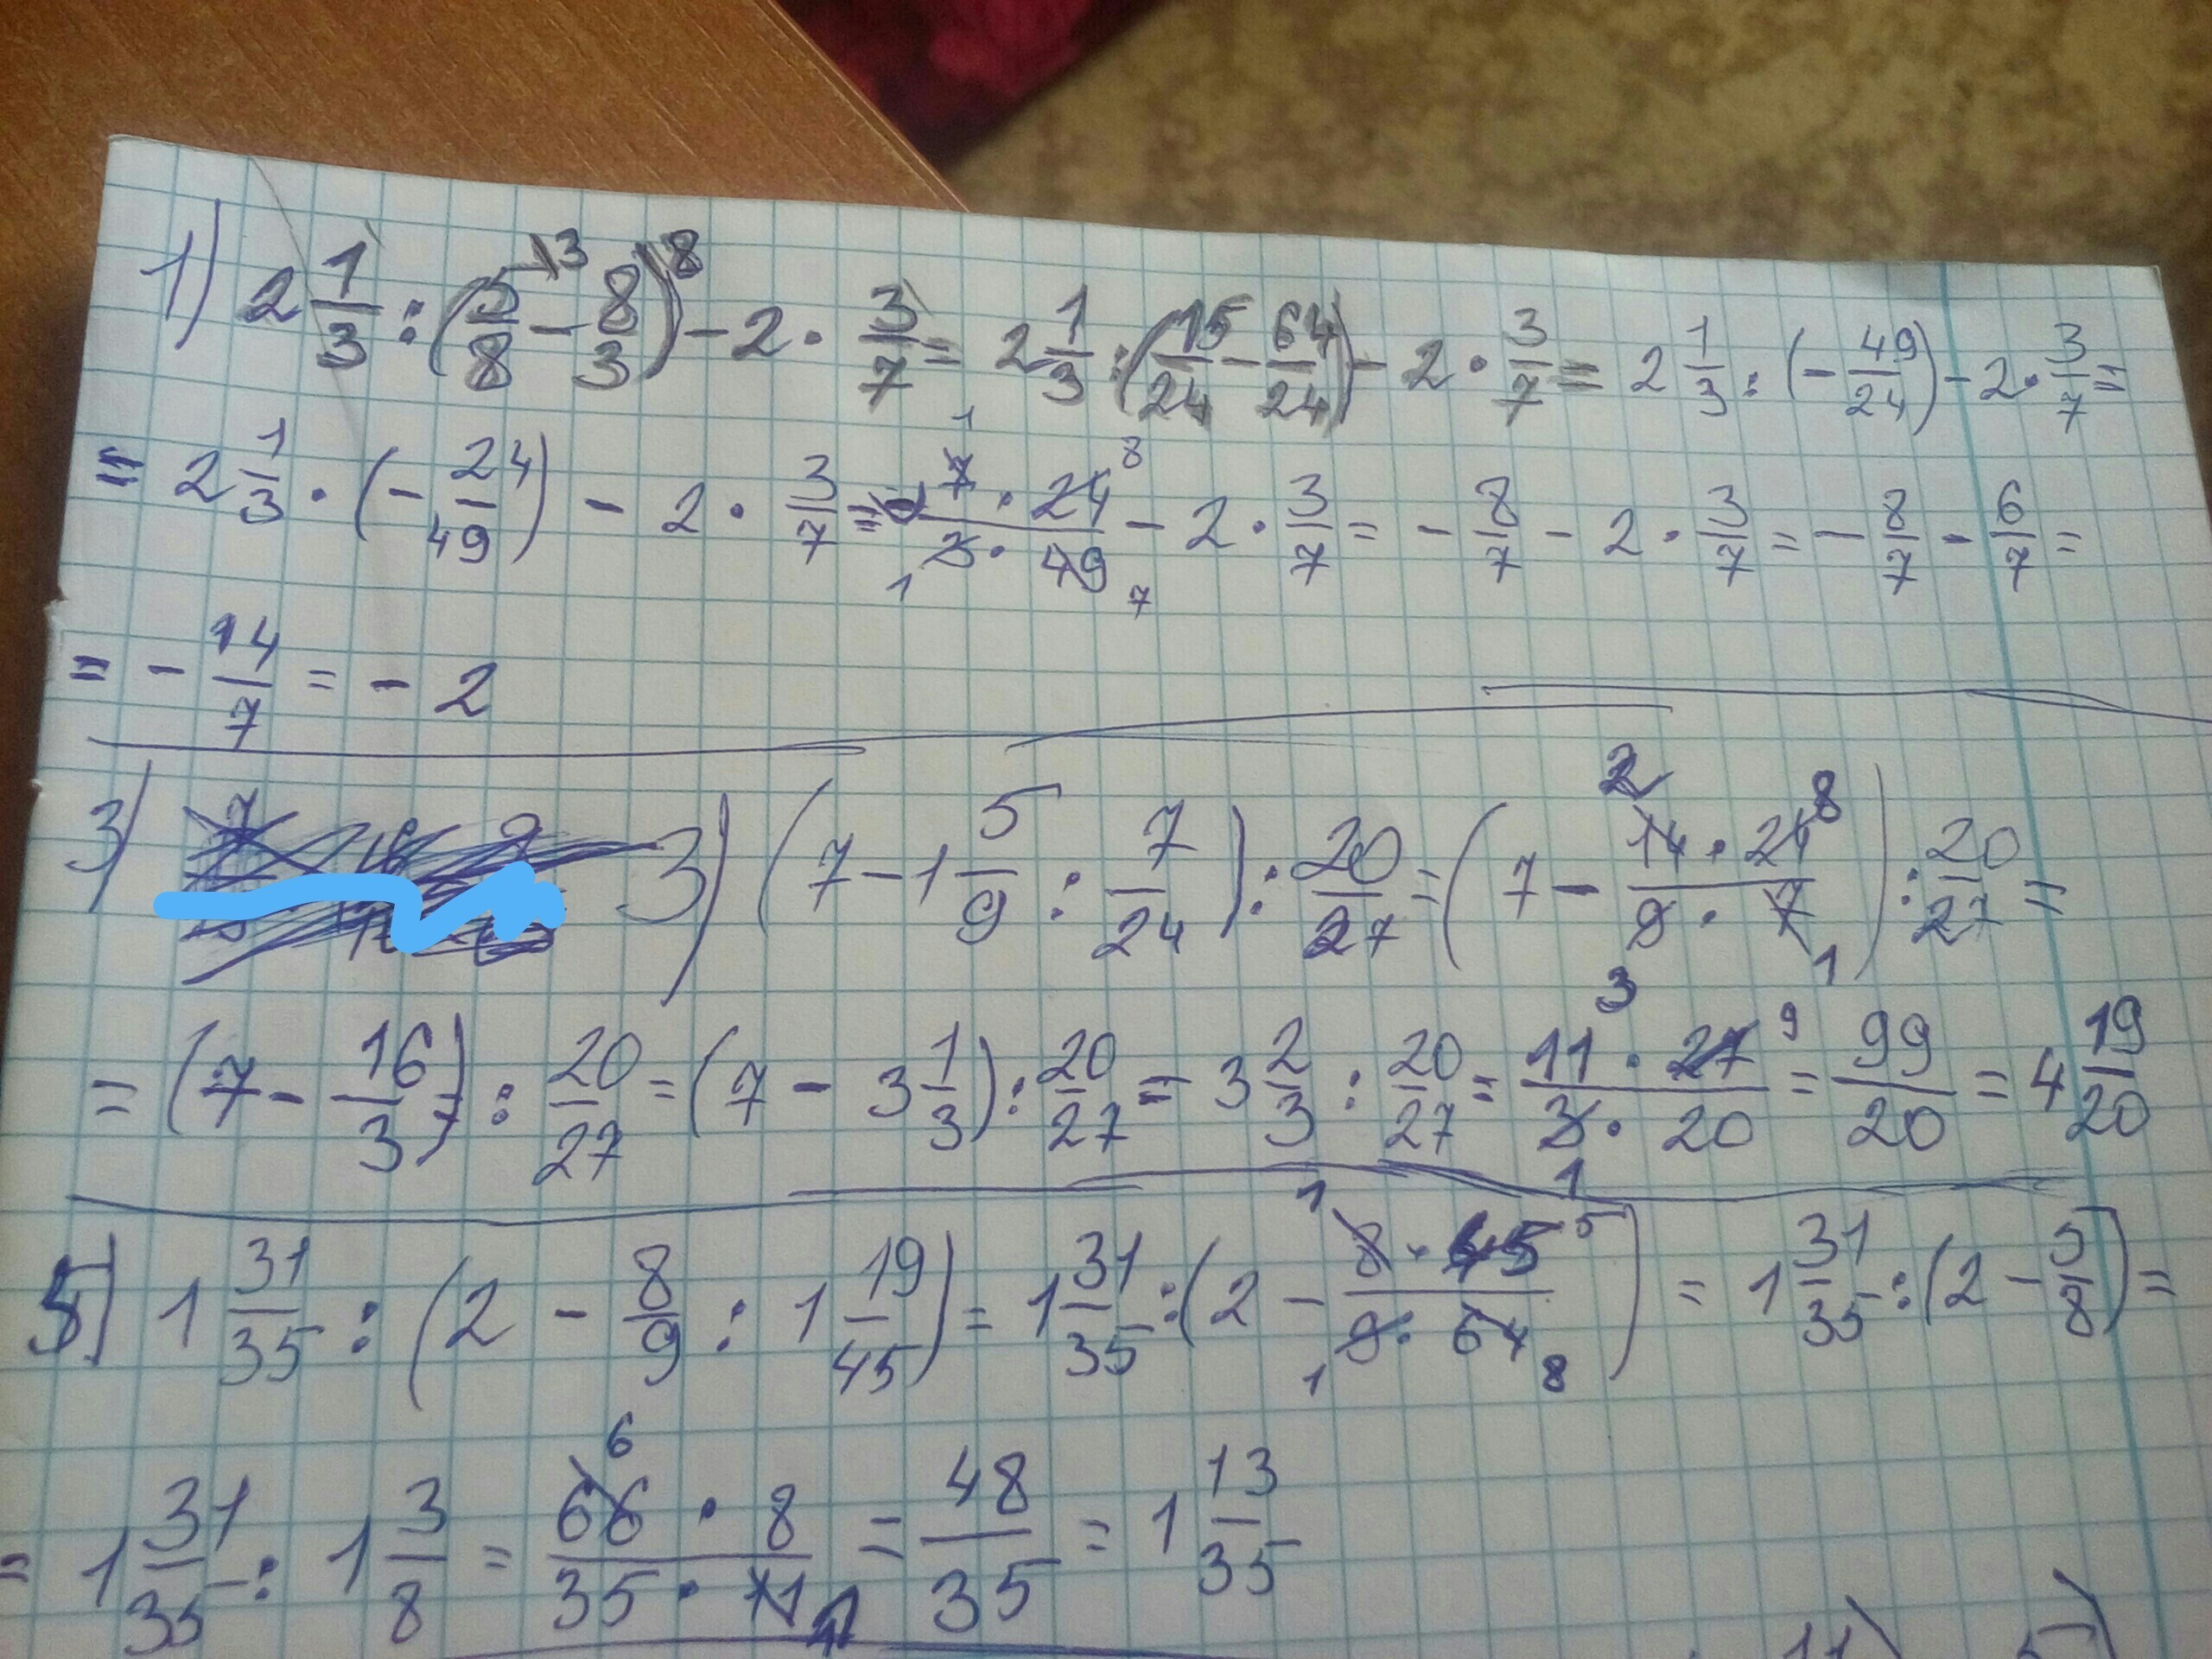 1) 2 1/3 : (5/8 \3 - 8/3 \8) - 2 · 3/7 = 2 1/3 : (15/24 - 64/24) - 2 · 3/7 = 2 1/3 : (- 49/24) - 2 · 3/7 =
= 2 1/3 · (- 24/49) - 2 · 3/7 = - 7 1 · 24 8 / 3 1 · 49 7 - 2 · 3/7 = - 8/7 - 2 · 3/7 = - 8/7 - 6/7 =
= - 14/7 = - 2
3) 3) (7 - 1 5/9 : 7/24) : 20/27 = (7 - 14 2 · 24 8 / 9 3 · 7 1) : 20/27 =
= (7 - 16/3) : 20/27 = (7 - 3 1/3) : 20/27 = 3 2/3 : 20/27 = 11 · 27 9 / 3 1 · 20 = 99/20 = 4 19/20
5) 1 31/35 : (2 - 8/9 : 1 19/45) = 1 31/35 : (2 - 8 1 · 45 5 / 9 1 · 64 8) = 1 31/35 : (2 - 5/8) =
= 1 31/35 : 1 3/8 = 66 6 · 8 / 35 · 11 1 = 48/35 = 1 13/35